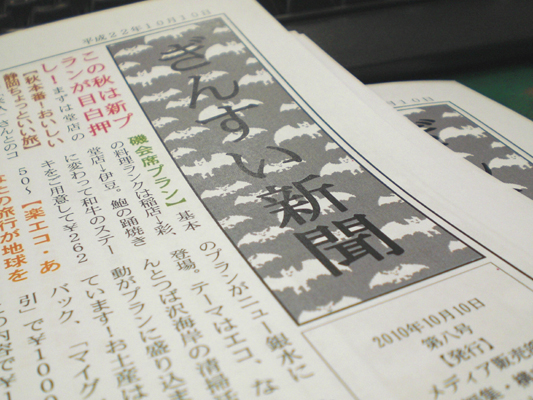 平成22年10月10日
ぎんすい新聞
2010年10月10日
第八号
【発行】
メディア販売
この秋は新プ
ランが目白押
し!まずは堂店の
【秋本番!おいしい
静岡ちょっといい旅】
【磯会席プラン】基本
の料理ランクは稲店→彩、
堂店→伊豆。鮑の踊焼き
に変わって和牛のステー
キをご用意して¥262
50〜【楽エコ・あ
なたの旅行が地球を
のプランがニュー銀水に
登場。テーマはエコ、な
んとつは沢海岸の清掃活
動がプランに盛り込ま
ています!お土産は
バック、「マイグ
引」で¥1000